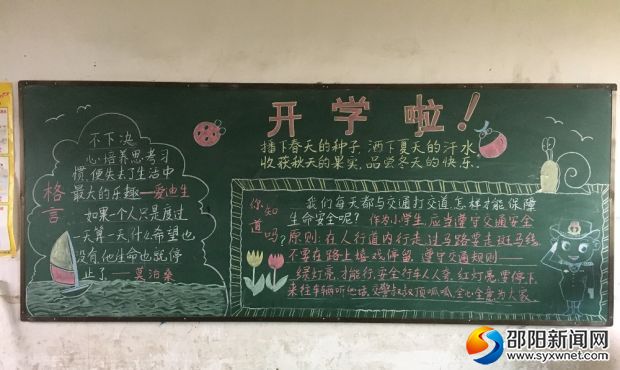 开学啦！
播下春天的种子，洒下夏天的汗水
收获秋天的果实，品尝冬天的快乐．
格言
不下决
心培养思考习
惯，便失去了生活中
最大的乐趣——爱迪生
如果一个人只是度过
一天算一天，什么希望也
没有，他生命也就停
止了——莫泊桑
你知道吗？
我们每天都与交通打交道，怎样才能保障
生命安全呢？作为小学生，应当遵守交通安全
原则：在人行道内行走，过马路要走斑马线，
不要在路上嬉戏停留，遵守交通规则——
绿灯亮，才能行，安全行车人人夸，红灯亮，要停下，
来往车辆听他话，交警叔叔顶呱呱，全心全意为大家
邵阳新闻网
www.syxwnet.com